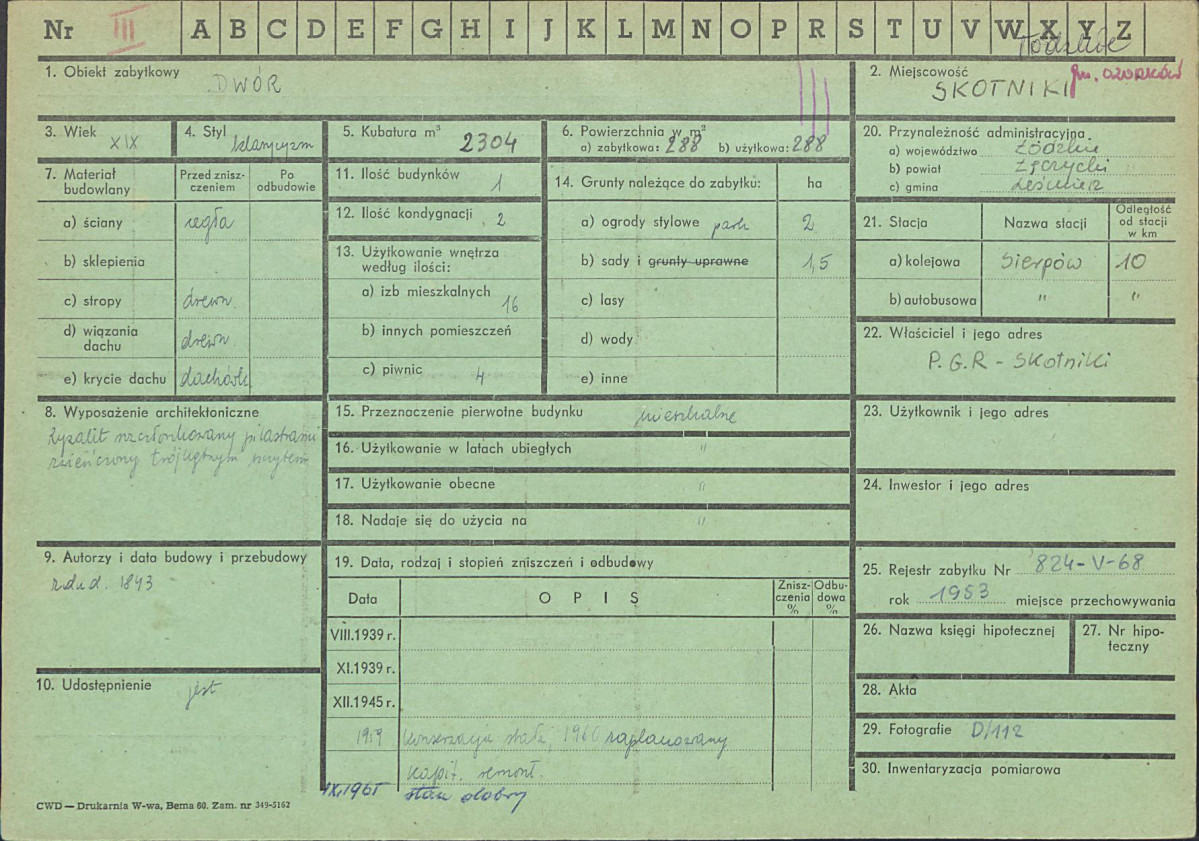 Nr III A B C D E F G H I J K L M N O P R S T U V W X Y Z
Łódzkie
1. Obiekt zabytkowy DWÓR
2. Miejscowość gm. OZORKÓW
SKOTNIKI
3. Wiek XIX
4. Styl klasycyzm
5. Kubatura m³ 2304
6. Powierzchnia w m²
a) zabytkowa: 288 b) użytkowa: 288
7. Materiał budowlany
Przed zniszczeniem
Po odbudowie
a) ściany cegła
b) sklepienia
c) stropy drewn.
d) wiązania dachu drewn.
e) krycie dachu dachówk
8. Wyposażenie architektoniczne
Ryzalit rozczłonkowany pilastrami
zwieńczony trójkątnym szczytem
9. Autorzy i data budowy i przebudowy
1843
10. Udostępnienie jest
11. Ilość budynków 1
12. Ilość kondygnacji 2
13. Użytkowanie wnętrza
według ilości:
a) izb mieszkalnych 16
b) innych pomieszczeń
c) piwnic 4
14. Grunty należące do zabytku: ha
a) ogrody stylowe park 2
b) sady i grunty uprawne 1,5
c) lasy
d) wody
e) inne
15. Przeznaczenie pierwotne budynku mieszkalne
16. Użytkowanie w latach ubiegłych "
17. Użytkowanie obecne "
18. Nadaje się do użycia na "
19. Data, rodzaj i stopień zniszczeń i odbudowy
Data OPIS Zniszczenia % Odbudowa %
VIII.1939 r.
XI.1939 r.
XII.1945 r.
1959 Konserwacja stała, 1960 zaplanowany
kapit. remont.
IX.1965 stan dobry
20. Przynależność administracyjna
a) województwo Łódzkie
b) powiat Zgierski
c) gmina Leśmierz
21. Stacja Nazwa stacji Odległość od stacji w km
a) kolejowa Sierpów 10
b) autobusowa " "
22. Właściciel i jego adres
P.G.R - Skotniki
23. Użytkownik i jego adres
24. Inwestor i jego adres
25. Rejestr zabytku Nr 824-V-68
rok 1953 miejsce przechowywania
26. Nazwa księgi hipotecznej
27. Nr hipoteczny
28. Akta
29. Fotografie D/112
30. Inwentaryzacja pomiarowa
CWD — Drukarnia W-wa, Bema 60. Zam. nr 349-5162